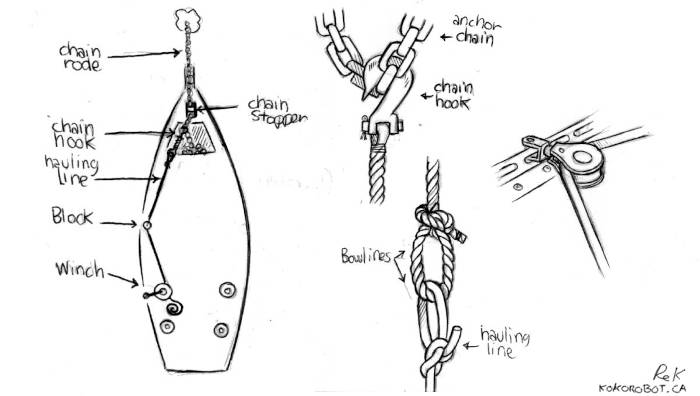 chain
rode
chain
stopper
chain
hook
hauling
line
Block
Winch
anchor
chain
chain
hook
Bowlines
hauling
line
ReK
KOKOROBOT.CA